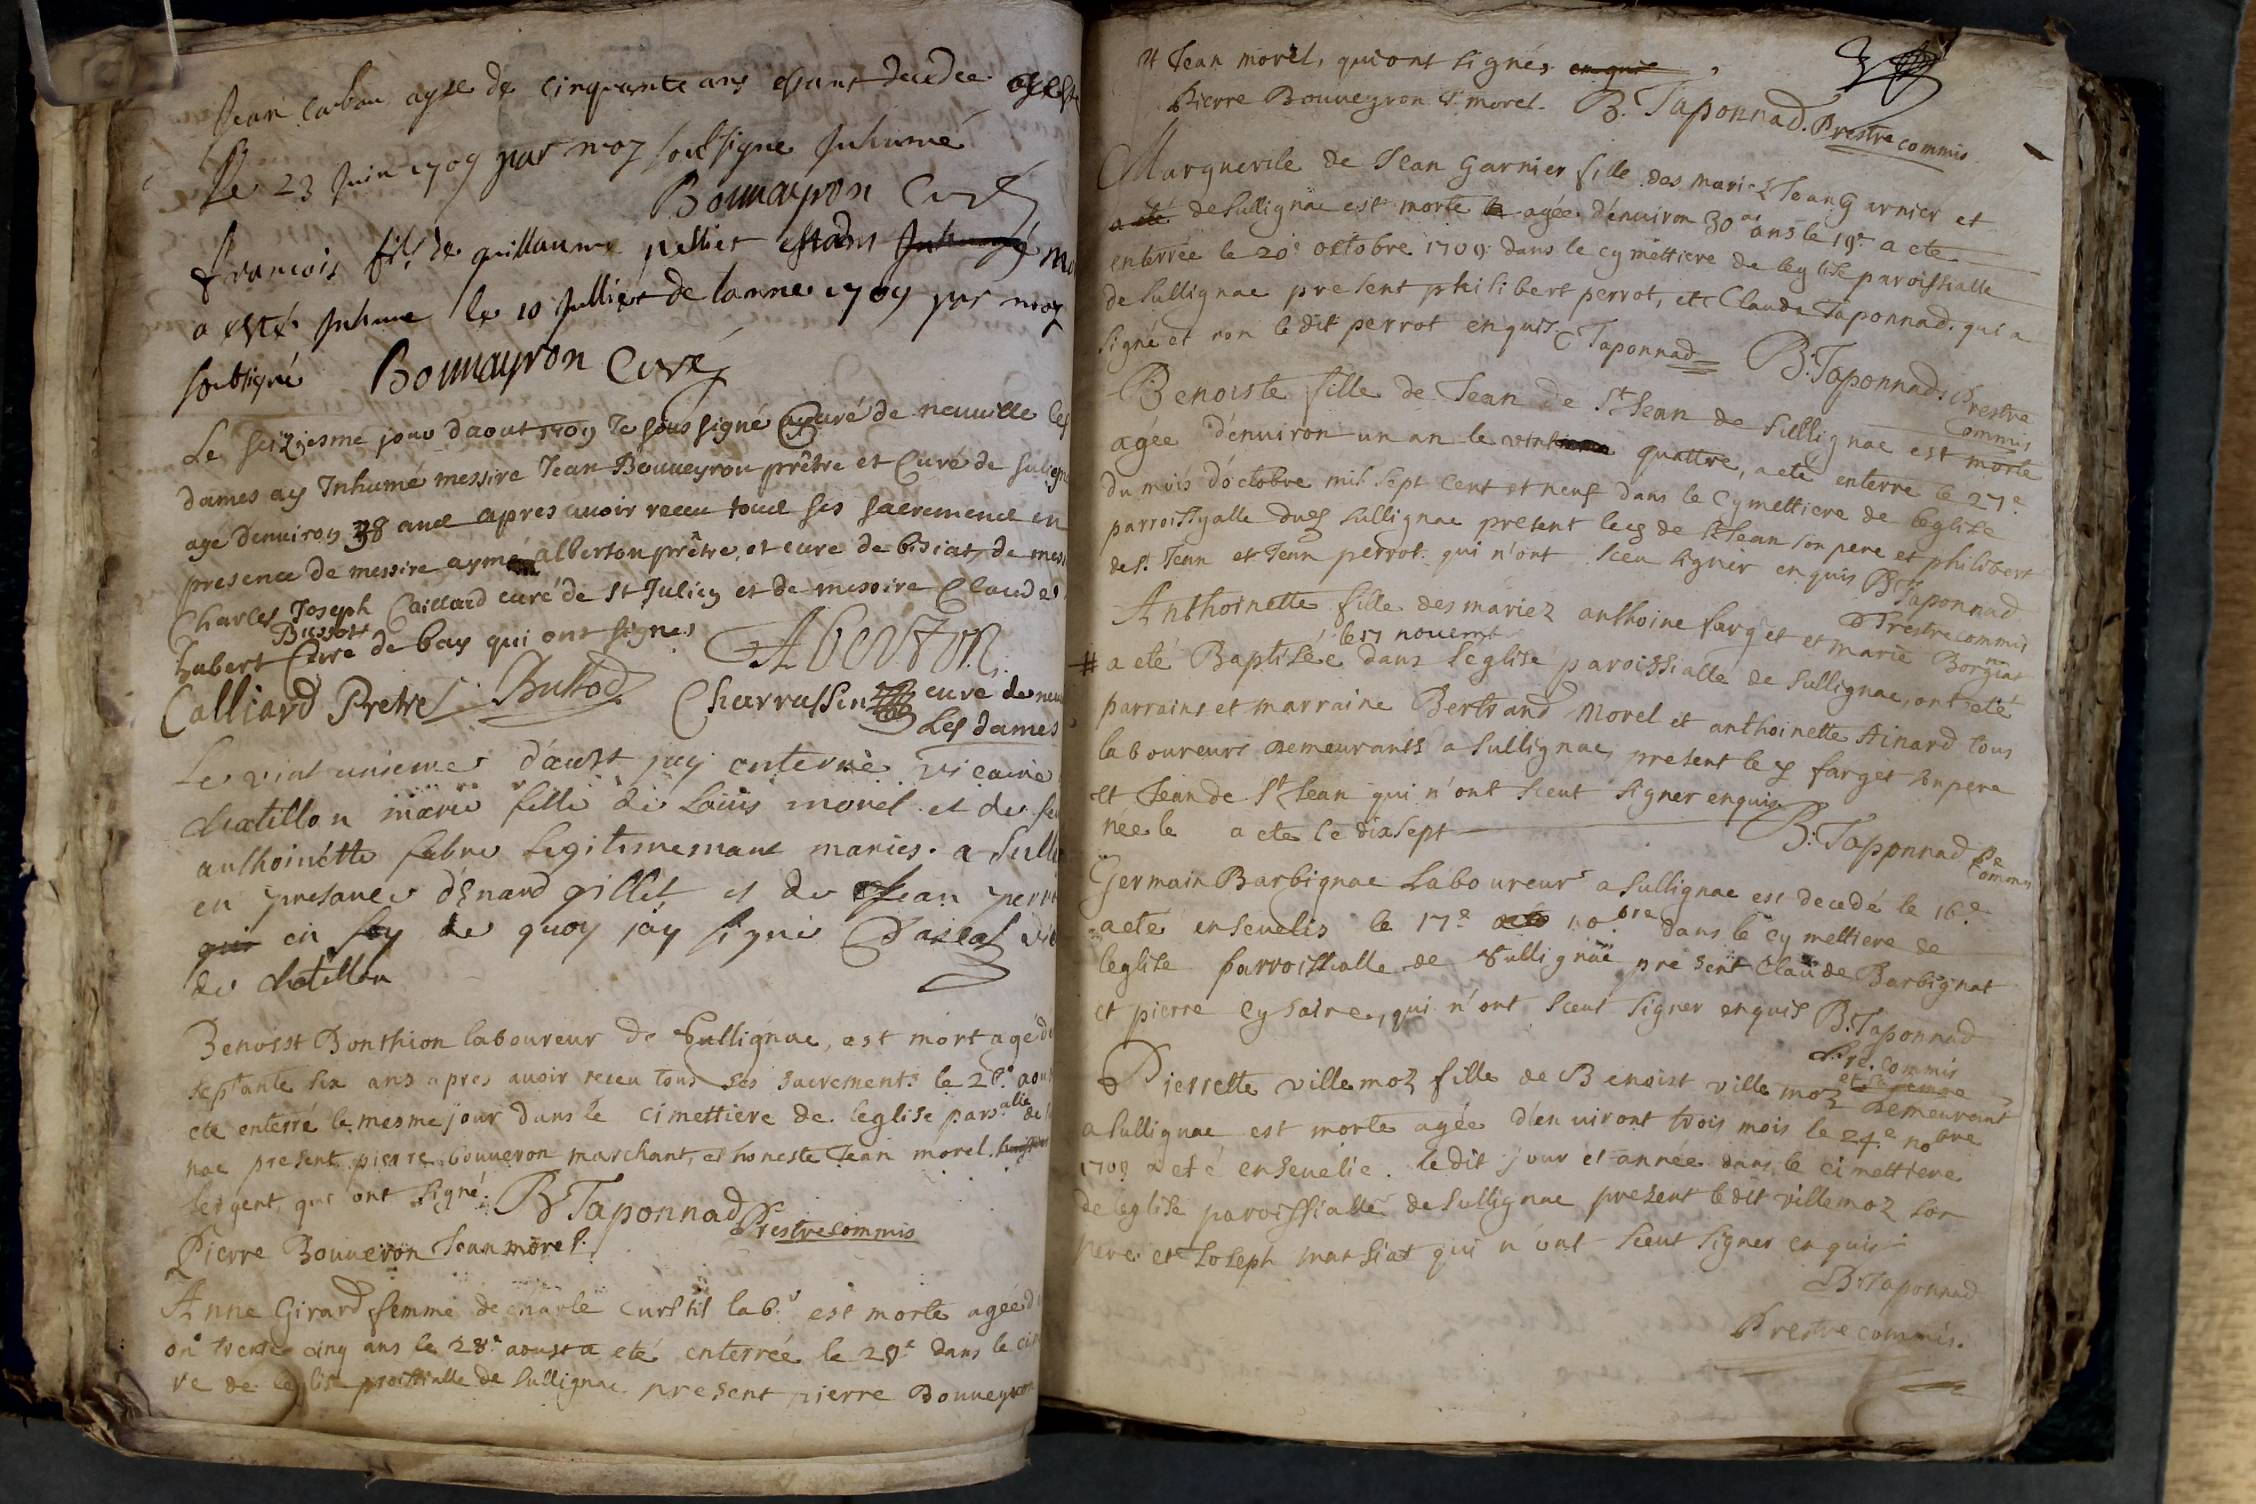 Jean carban agse de cinquante ans estant decedee a este
Le 23 Juin 1709 par moy soubsigne Inhumé
Bouvayron Curé
francois fils de guillaume pellier estadns Inhumé mo
a esté Inhume le 10 Julliet de lanne 1709 par moy
soubsigné Bouvayron Curé
Le seiziesme jour daout 1709 Je sous signé Curé de neuville les
dames ay Inhumé messire Jean Bouveyron prêtre et Curé de Suligna
agé denviron 38 ans apres avoir receu tous ses sacremens en
presence de messire aymé alberton prêtre et cure de bisiat, de mess
Charles Joseph Caillard curé de St Julien et de messire Claude
Bussod
hubert Cure de bay qui ont signes
Alberton
Calliard Pretre Buhod Charrassin curé de neu
Les dames
Le vint unieme d'aust jay enterré vicaire
chatillon marie fille de Louis morel et de feu
anthoinette fabre legitimemant maries a Sulli
en presance d'Enard gillet et de Jean perr
qui en foy de quoy jay signé Dareal vic
de chatillon
Benoist Bonthion laboureur de Sullignac, est mort agé d
septante six ans apres avoir receu tous ses sacrements le 26e aou
eté enterré le mesme jour dans le cimettiere de leglise parsalle de S
nac present pierre bouveron marchant, et honeste Jean morel
sergent, qui ont signé. B Taponnad
Prestre commis
Pierre Bouveron Jean morel
Anne Girard femme de charle Curstil labr est morte agée d
on trente cinq ans le 28e aoust a eté enterrée le 29e dans le cim
re de leglise proissialle de Sullignac present pierre Bouveyron
et Jean morel, qui ont signés enquis
Pierre Bouveyron J. morel. B. Taponnad. Prestre commis
Marguerite de Jean Garnier fille des mariez Jean Garnier et
a eté de Sullignac est morte agée d'environ 30 ans le 19e a ete
enterrée le 20e octobre 1709 dans le cymettiere de leglise paroissialle
de Sullignac present philibert perrot, et Claude Taponnad. qui a
signé et non le dit perrot enquis. C Taponnad B. Taponnad. Prestre
commis
Benoiste fille de Jean de St Jean de Sullignac est morte
agée d'environ un an le vint quattre, a eté enterre le 27e
du mois d'octobre mil sept cent et neuf dans le Cymettiere de leglise
parroissyalle dud Sullignac present led de St Jean son pere et philibert
de St Jean et Jean perrot qui n'ont sceu signer enquis B Taponnad
Prestre commis
Anthoinette fille des mariez anthoine farget et marie Borgiat
le 17 novembre
# a eté Baptisée dans l'église paroissialle de Sullignac, ont eté
parrains et marraine Bertrand Morel et anthoinette Ainard tous
laboureurs demeurants a Sullignac, present led farget son pere
et Jean de St Jean qui n'ont sceut signer enquis
née le a ete le dixsept B. Taponnad Pe
commis
Germain Barbignac Laboureur a Sullignac est decedé le 16e
a eté ensevelis le 17e 10bre dans le cymettiere de
leglise parroissialle de Sullignac present Claude Barbignat
et pierre Cysaire, qui n'ont sceut signer enquis B. Taponnad
Pre. commis
Pierrette villemoz fille de Benoist villemoz demeurant
a Sullignac est morte agée d'environt trois mois le 24e nobre
1709 a eté ensevelie. le dit jour et année dans le cimettiere
de leglise paroissialle de Sullignac present le dit villemoz son
pere et Joseph marsiat qui n'ont sceut signer enquis
B. Taponnad
Prestre commis.